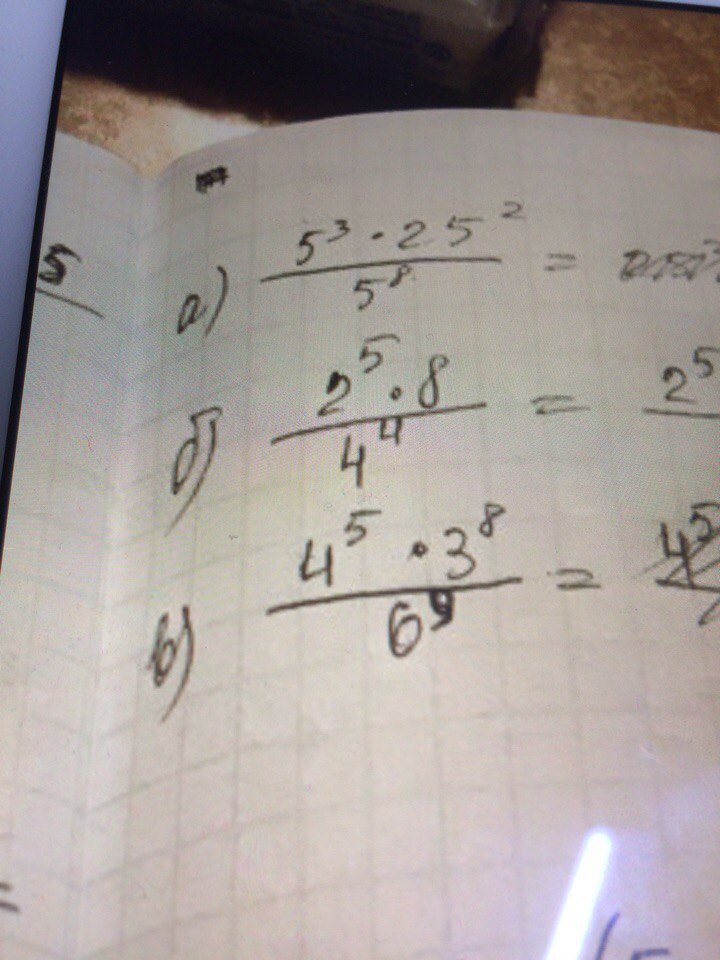 5
а) 5³ · 25² / 5⁸ =
б) 2⁵ · 8 / 4⁴ = 2⁵
в) 4⁵ · 3⁸ / 6⁹ = 4⁵
=